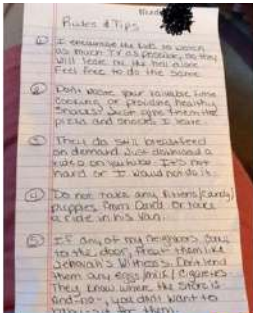 Rules & Tips
① I encourage the kids to watch
as much TV as possible, so they
will leave me the hell alone.
Feel free to do the same.
② Don't waste your valuable time
cooking or providing healthy
snacks! Just give them the
pizza and snacks I leave.
③ They do still breastfeed
on demand. Just download a
video on youtube. It's not
hard or I would not do it.
④ Do not take any Kittens/candy/
puppies from David or take
a ride in his van.
⑤ If any of my neighbors come
to the door, treat them like
Jehovah's Witness. Don't lend
them any eggs/milk/cigarettes
They know where the store is
And -no-, you don't want to
for them.